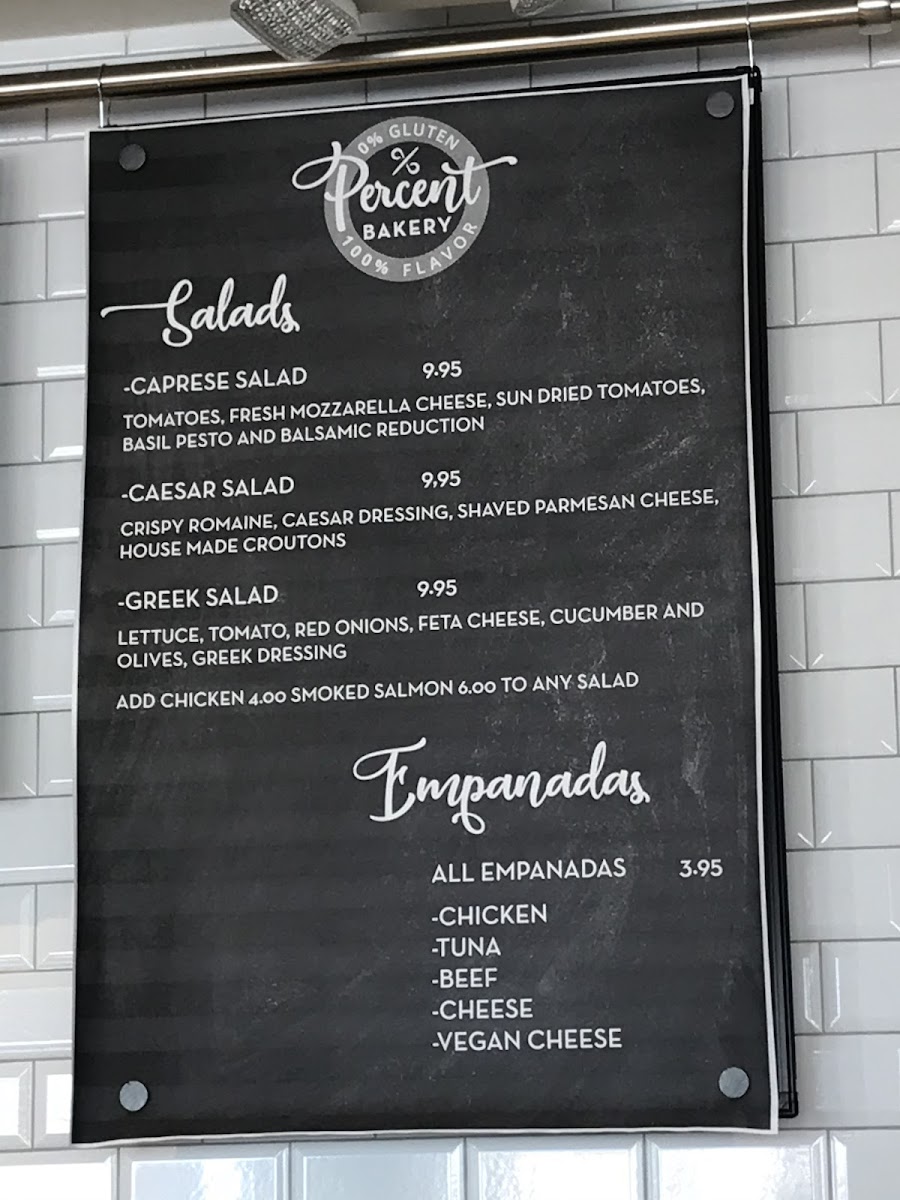 0% GLUTEN
%
Percent
BAKERY
100% FLAVOR
Salads
-CAPRESE SALAD 9.95
TOMATOES, FRESH MOZZARELLA CHEESE, SUN DRIED TOMATOES,
BASIL PESTO AND BALSAMIC REDUCTION
-CAESAR SALAD 9,95
CRISPY ROMAINE, CAESAR DRESSING, SHAVED PARMESAN CHEESE,
HOUSE MADE CROUTONS
-GREEK SALAD 9.95
LETTUCE, TOMATO, RED ONIONS, FETA CHEESE, CUCUMBER AND
OLIVES, GREEK DRESSING
ADD CHICKEN 4.00 SMOKED SALMON 6.00 TO ANY SALAD
Empanadas
ALL EMPANADAS 3.95
-CHICKEN
-TUNA
-BEEF
-CHEESE
-VEGAN CHEESE